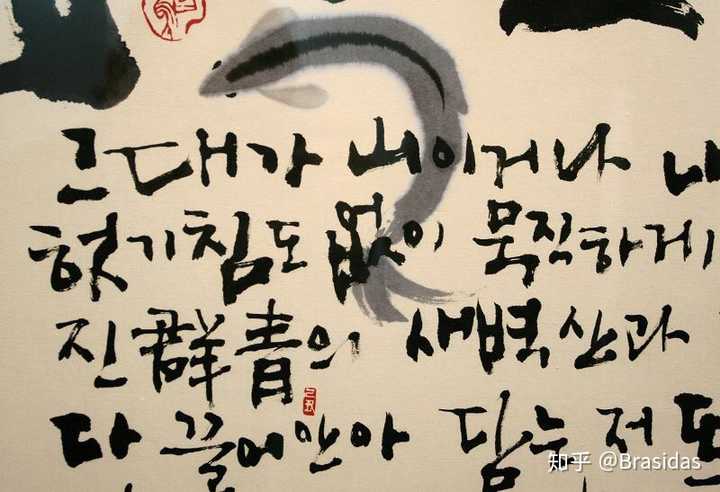 그대가 山이거나
헛기침도 없이 묵직하게
진 群青의 새벽 산과
다 끌어안아 담는 저
知乎 @Brasidas